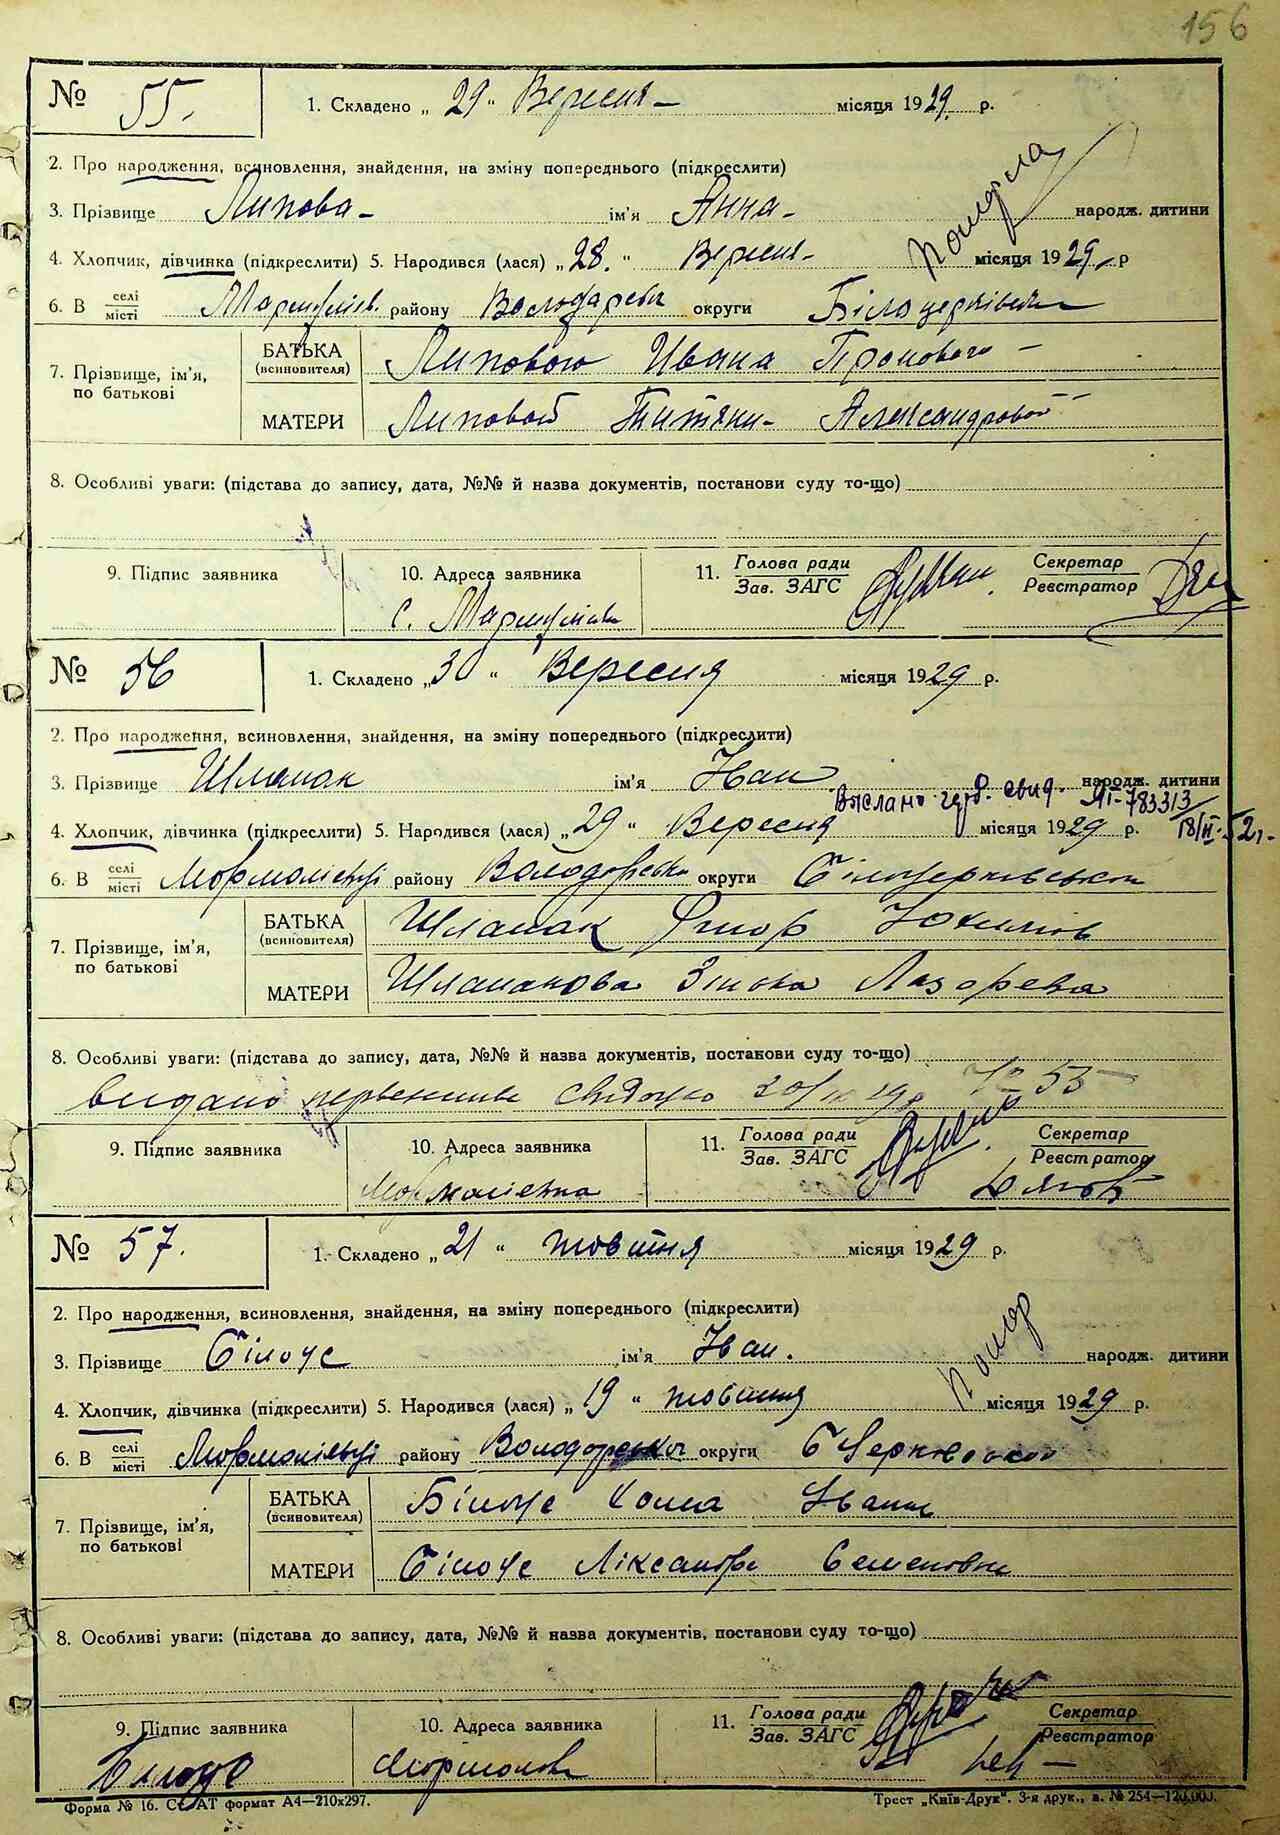 156
№ 55.
1. Складено „ 29 “ Вересня – місяця 1929. р.
2. Про народження, всиновлення, знайдення, на зміну попереднього (підкреслити)
3. Прізвище Липова – ім'я Анна – народж. дитини
Померла
4. Хлопчик, дівчинка (підкреслити) 5. Народився (лася) „ 28. “ Вересня – місяця 1929. р
6. В селі/місті района району Володарськ округи Білоцерківськ
7. Прізвище, ім'я, по батькові
БАТЬКА (всиновителя) Липового Ивана
МАТЕРИ Липовой Александровой
8. Особливі уваги: (підстава до запису, дата, №№ й назва документів, постанови суду то-що)
9. Підпис заявника
10. Адреса заявника
с.
11. Голова ради / Зав. ЗАГС
Секретар / Реєстратор
№ 56
1. Складено „ 30 “ Вересня місяця 1929 р.
2. Про народження, всиновлення, знайдення, на зміну попереднього (підкреслити)
3. Прізвище Шлапак ім'я Іван народж. дитини
Выслано свид. 783313 18/II-52 г.
4. Хлопчик, дівчинка (підкреслити) 5. Народився (лася) „ 29 “ Вересня місяця 1929 р.
6. В селі/місті району округи
7. Прізвище, ім'я, по батькові
БАТЬКА (всиновителя) Шлапак
МАТЕРИ Шлапакова Лазорева
8. Особливі уваги: (підстава до запису, дата, №№ й назва документів, постанови суду то-що)
видано № 55
9. Підпис заявника
10. Адреса заявника
11. Голова ради / Зав. ЗАГС
Секретар / Реєстратор
№ 57.
1. Складено „ 21 “ жовтня місяця 1929 р.
2. Про народження, всиновлення, знайдення, на зміну попереднього (підкреслити)
3. Прізвище Білоус ім'я Іван. народж. дитини
Помер
4. Хлопчик, дівчинка (підкреслити) 5. Народився (лася) „ 19 “ жовтня місяця 1929 р.
6. В селі/місті району округи
7. Прізвище, ім'я, по батькові
БАТЬКА (всиновителя) Білоус
МАТЕРИ Білоус Ліксандра Семеновна
8. Особливі уваги: (підстава до запису, дата, №№ й назва документів, постанови суду то-що)
9. Підпис заявника
Білоус
10. Адреса заявника
11. Голова ради / Зав. ЗАГС
Секретар / Реєстратор
Форма № 16. СтАТ формат А4—210x297.
Трест „Київ-Друк“. 3-я друк., в. № 254—120.000.